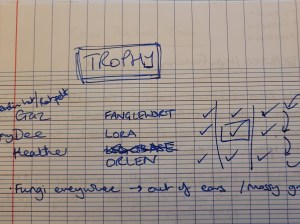 TROPHY
Gaz FANGLEWORT ✓ ✓ ✓
Dee LORA ✓ ✓ ✓
Heather
ORLEN ✓ ✓ ✓
• Fungi everywhere → out of ears / mossy